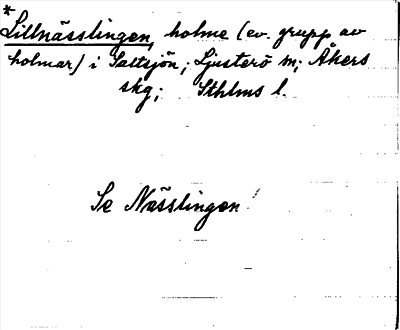 *
Lillnässlingen, holme (ev. grupp av
holmar) i Saltsjön; Ljusterö sn; Åkers
skg; Sthlms l.
Se Nässlingen!